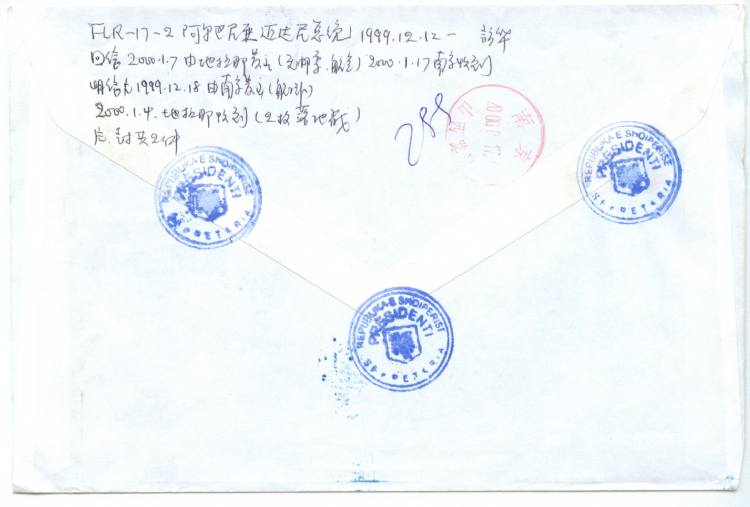 FLR-17-2 阿尔巴尼亚迈达尼总统 1999.12.12- 访华
回信 2000.1.7 由地拉那发出(无邮票.航空) 2000.1.17 南京收到
明信片1999.12.18由南京发出(航挂)
2000.1.4. 地拉那收到(2枚落地戳)
片.封共2件
南京
REPUBLIKA E SHQIPERISE
PRESIDENTI
SEKRETARIA
REPUBLIKA E SHQIPERISE
PRESIDENTI
SEKRETARIA
REPUBLIKA E SHQIPERISE
PRESIDENTI
SEKRETARIA